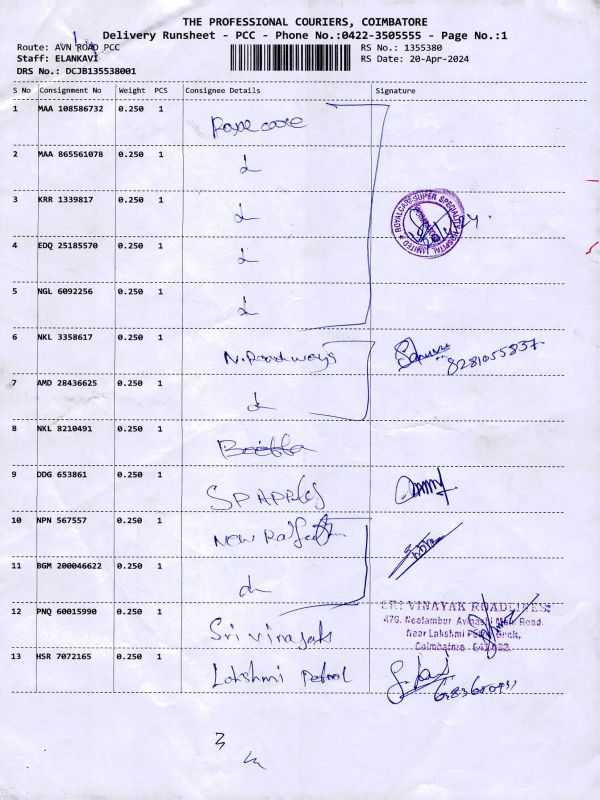 THE PROFESSIONAL COURIERS, COIMBATORE
Delivery Runsheet - PCC - Phone No.:0422-3505555 - Page No.:1
Route: AVN ROAD PCC
Staff: ELANKAVI
DRS No.: DCJB135538001
RS No.: 1355380
RS Date: 20-Apr-2024
S No Consignment No Weight PCS Consignee Details Signature
1 MAA 108586732 0.250 1
2 MAA 865561078 0.250 1
3 KRR 1339817 0.250 1
ROYALCARE SUPER SPECIALTY HOSPITAL LIMITED
4 EDQ 25185570 0.250 1
5 NGL 6092256 0.250 1
6 NKL 3358617 0.250 1 N. Roadways 8281055837
7 AMD 28436625 0.250 1
8 NKL 8210491 0.250 1
9 DDG 653861 0.250 1 SP APPles
10 NPN 567557 0.250 1 New
11 BGM 200046622 0.250 1
12 PNQ 60015990 0.250 1 Sri vinayak
SRI VINAYAK ROADLINES
476, Neelambur Avinashi Main Road,
Near Lakshmi
Coimbatore
13 HSR 7072165 0.250 1 Lakshmi Petrol
3